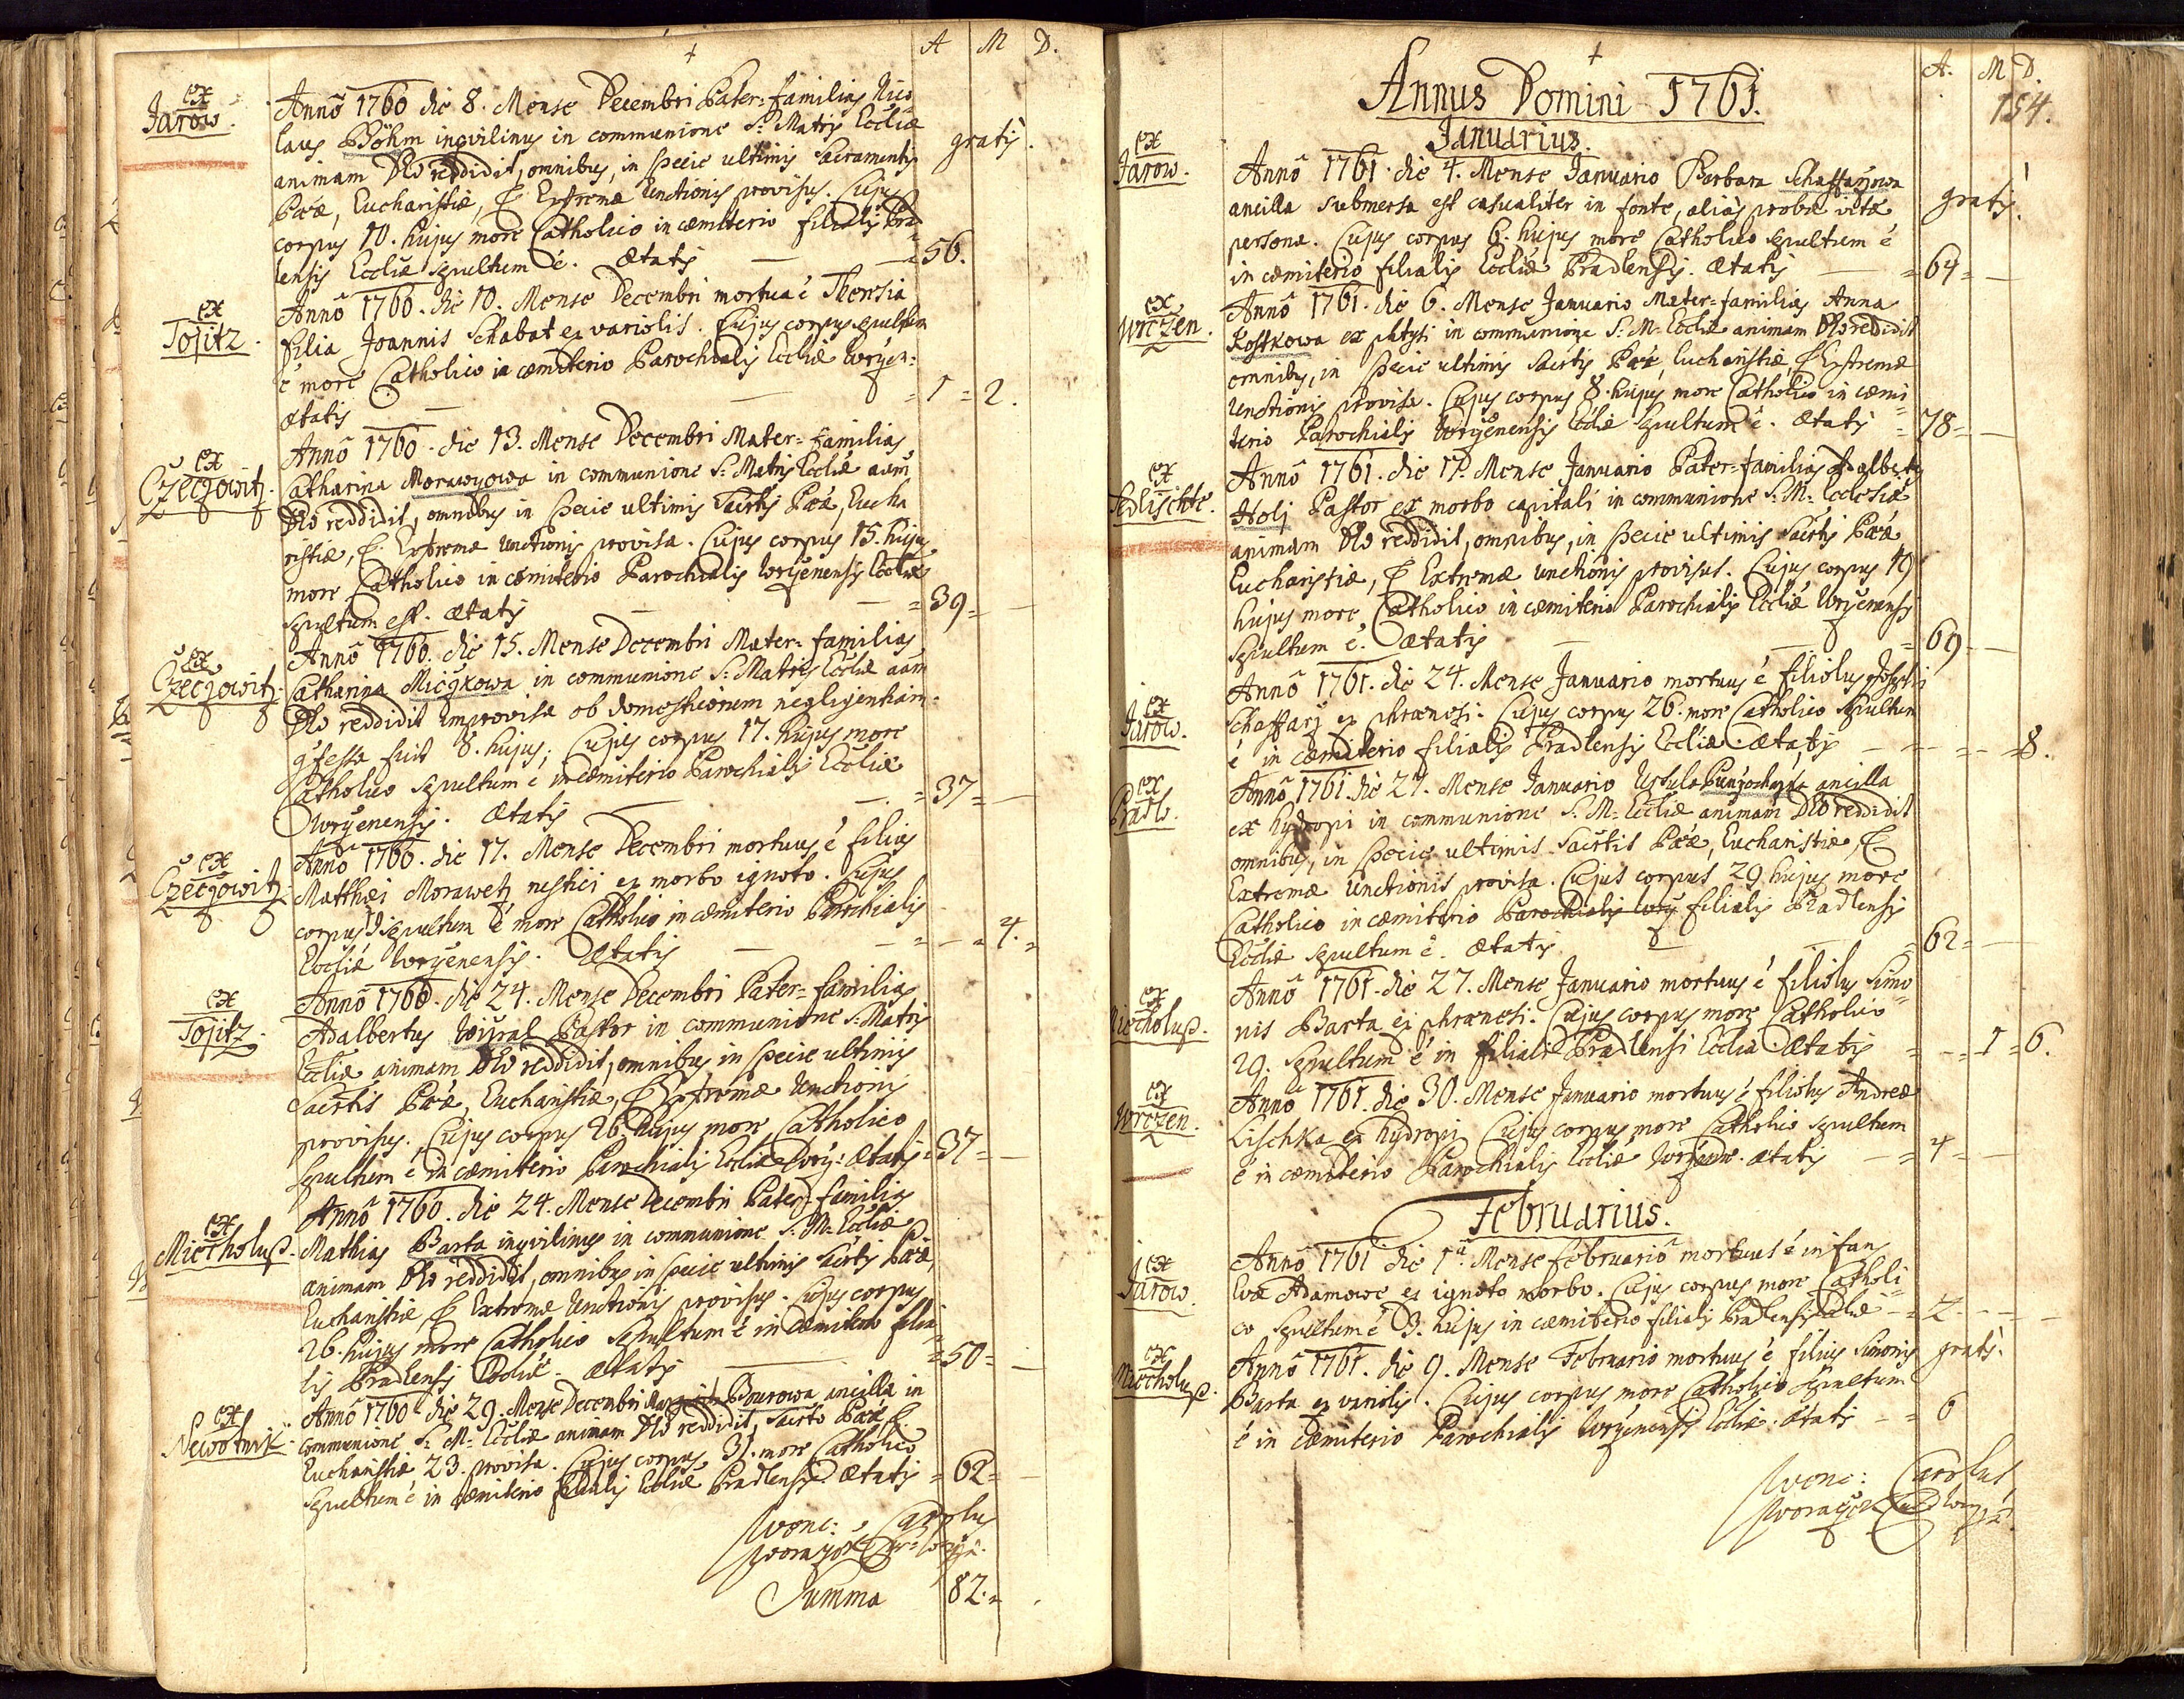 A M D.
ex
Jarow.
Anno 1760 die 8. Mense Decembri Pater-familias Nico
laus Böhm inqvilinus in communione S: Matris Eccliae
gratis.
animam Deo reddidit, omnibus, in specie ultimis Sacramentis
Pœæ, Eucharistiæ, & Extremæ Unctionis provisus. Cujus
corpus 10. hujus more Catholico in cœmiterio filialis Prad
lensis Eccliæ sepultum ē. Ætatis = 56.
ex
Tojitz.
Anno 1760. die 10. Mense Decembri mortua ē Theresia
filia Joannis Schabat ex variolis. Cujus corpus sepultum
ē more Catholico in cœmiterio Parochialis Eccliæ Wrczen:
Ætatis = 1 = 2.
ex
Czeczowitz.
Anno 1760. die 13. Mense Decembri Mater-familias
Catharina Morawczowa in communione S: Matris Eccliæ aam
Deo reddidit, omnibus in specie ultimis Sacrtis Pœæ, Eucha
ristiæ, & Extremæ Unctionis provisa. Cujus corpus 15. hujus
more Catholico in cœmiterio Parochialis Wrczenensis Eccliæ
sepultum est. Ætatis = 39 =
ex
Czeczowitz.
Anno 1760. die 15. Mense Decembri Mater-familias
Catharina Miczkowa in communione S: Matris Eccliæ aam
Deo reddidit improvisa ob domesticorum negligentiam.
qfessa fuit 8. hujus; Cujus corpus 17. hujus more
Catholico sepultum ē in cœmiterio Parochialis Eccliæ
Wrczenensis. Ætatis = 37 =
ex
Czeczowitz.
Anno 1760. die 17. Mense Decembri mortuus ē filius
Matthæi Morawetz rustici ex morbo ignoto. Cujus
corpus 19 sepultum ē more Catholico in cœmiterio Parochialis
Eccliæ Wrczenensis. Ætatis = = 4. =
ex
Tojitz.
Anno 1760. die 24. Mense Decembri Pater-familias
Adalbertus Pastor in communione S: Matris
Eccliæ animam Deo reddidit, omnibus in specie ultimis
Sacrtis Pœæ, Eucharistiæ, & Extremæ Unctionis
provisus. Cujus corpus 26 hujus more Catholico
sepultum ē in cœmiterio Parochialis Eccliæ Wrcz: Ætatis = 37 =
ex
Miecholup.
Anno 1760. die 24. Mense Decembri Pater-familias
Mathias Barta inqvilinus in communione S. M. Eccliæ
animam Deo reddidit, omnibus in specie ultimis Sacrtis Pœæ,
Eucharistiæ, & Extremæ Unctionis provisus. Cujus corpus
26. hujus more Catholico sepultum ē in cœmiterio filia
lis Pradlensis Eccliæ. Ætatis = 50 =
ex
Newotnik
Anno 1760 die 29. Mense Decembri Bourowa ancilla in
communione S. M. Eccliæ animam Deo reddidit, Sacrto Pœæ &
Eucharistiæ 23. provisa. Cujus corpus 31. more Catholico
sepultum ē in cœmiterio filialis Eccliæ Pradlensis. Ætatis = 62 =
Wenc: Carolus
Summa 82. =
A. M D.
154.
Annus Domini 1761.
Januarius.
ex
Jarow.
Anno 1761. die 4. Mense Januario Barbara Schaffarzowa
ancilla submersa est casualiter in fonte, aliàs probæ vitæ
gratis.
persona. Cujus corpus 6. hujus more Catholico sepultum ē
in cœmiterio filialis Eccliæ Pradlensis. Ætatis = 64 =
ex
Wrczen.
Anno 1761. die 6. Mense Januario Mater-familias Anna
Kostkowa ex phtysi in communione S: M: Eccliæ animam Deo reddidit
omnibus, in specie ultimis Sacrtis Pœæ, Eucharistiæ, & Extremæ
Unctionis provisa. Cujus corpus 8. hujus more Catholico in cœmi
terio Parochialis Wrczenensis Eccliæ sepultum ē. Ætatis = 78 =
ex
Sedlischte.
Anno 1761. die 17. Mense Januario Pater-familias Adalbertus
Holj Pastor ex morbo capitali in communione S: M: Ecclesiæ
animam Deo reddidit, omnibus, in specie ultimis Sacrtis Pœæ
Eucharistiæ, & Extremæ Unctionis provisus. Cujus corpus 19
hujus more Catholico in cœmiterio Parochialis Eccliæ Wrczenensis
sepultum ē. Ætatis = 69 =
ex
Jarow.
Anno 1761. die 24. Mense Januario mortuus ē filiolus Josephi
Schaffarz ex phrænesi. Cujus corpus 26. more Catholico sepultum
ē in cœmiterio filialis Pradlensis Eccliæ. Ætatis = 8.
ex
Pradl.
Anno 1761. die 27. Mense Januario Ursula ancilla
ex hydropi in communione S. M. Eccliæ animam Deo reddidit
omnibus, in specie ultimis Sacrtis Pœæ, Eucharistiæ, &
Extremæ Unctionis provisa. Cujus corpus 29 hujus more
Catholico in cœmiterio Parochialis Wrcz filialis Pradlensis
Eccliæ sepultum ē. Ætatis = 62 =
ex
Miecholup.
Anno 1761. die 27. Mense Januario mortuus ē filiolus Simo
nis Barta ex phrænesi. Cujus corpus more Catholico
29. sepultum ē in filiali Pradlensi Ecclia. Ætatis = 1 = 6.
ex
Wrczen.
Anno 1761. die 30. Mense Januario mortuus ē filiolus Andreæ
Lischka ex hydropi. Cujus corpus more Catholico sepultum
ē in cœmiterio Parochialis Eccliæ Wrczen. Ætatis = 4 =
Februarius.
ex
Jarow.
Anno 1761 die 1a Mense Februario mortuus ē infans
Evæ Adamowe ex ignoto morbo. Cujus corpus more Catholi
co sepultum ē 3. hujus in cœmiterio filialis Pradlensis Eccliæ = 2
ex
Miecholup.
Anno 1761. die 9. Mense Februario mortuus ē filius Simonis
gratis.
Barta ex variolis. Cujus corpus more Catholico sepultum
ē in cœmiterio Parochialis Wrczenensis Eccliæ. Ætatis = 6
Wenc: Carolus